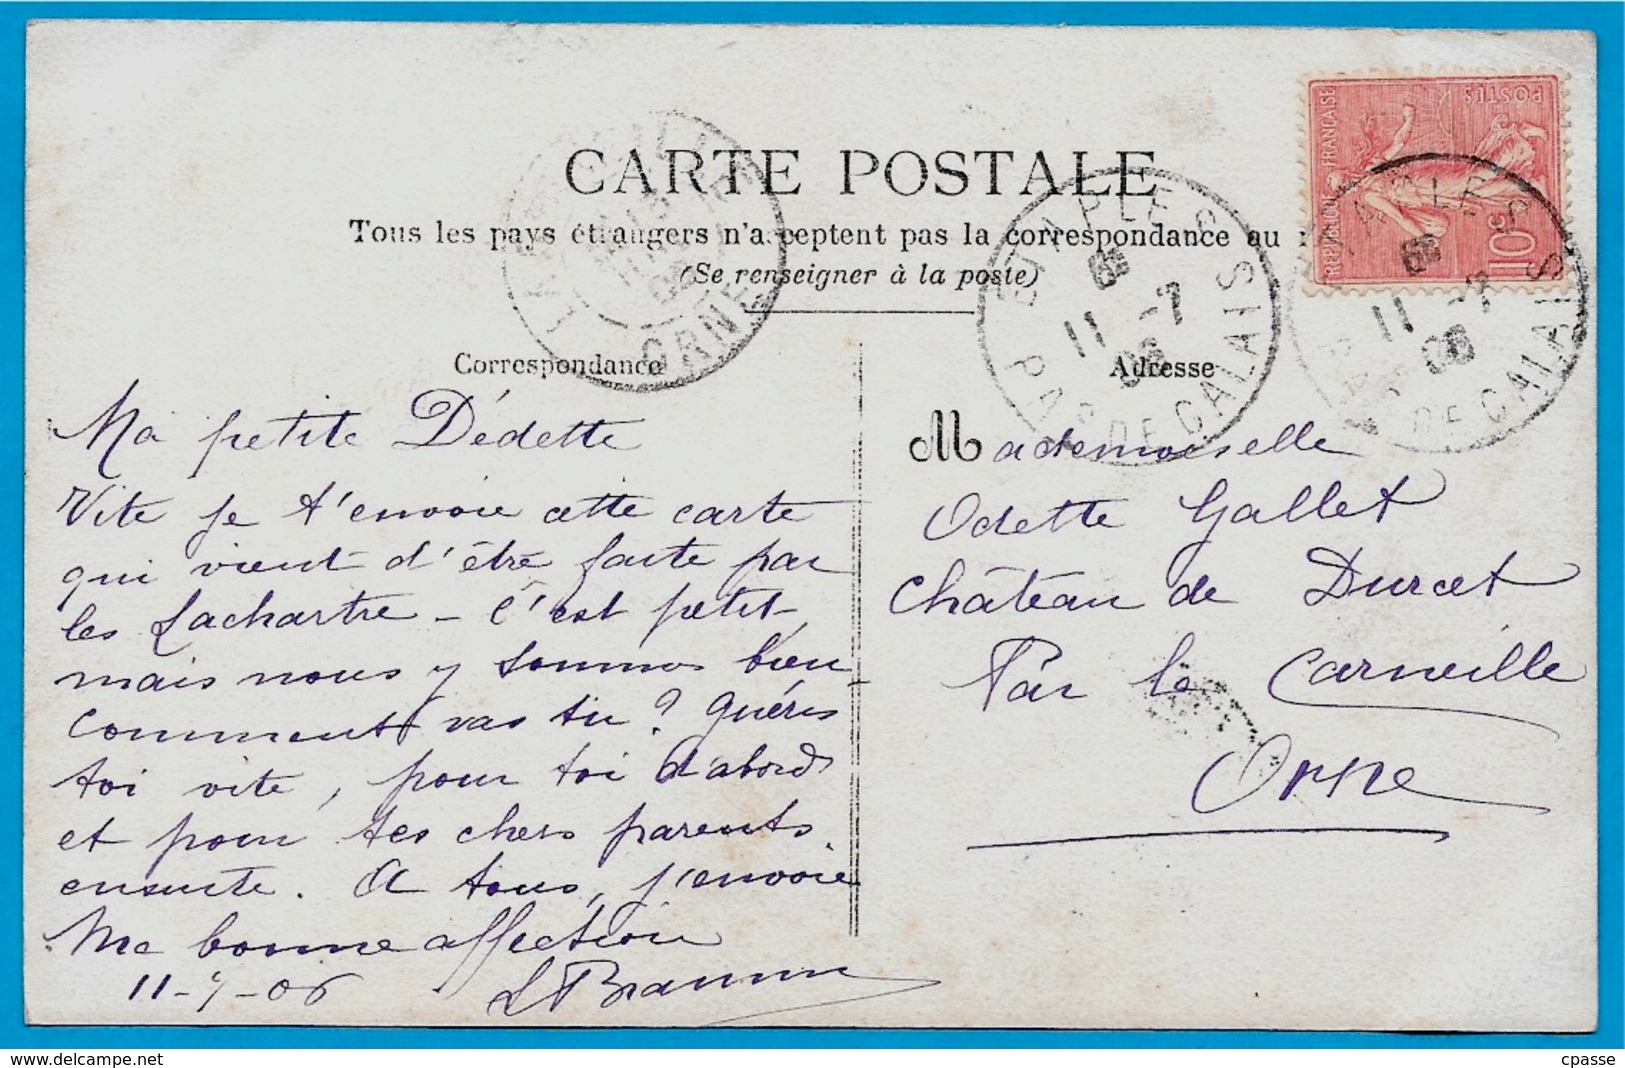 CARTE POSTALE
Tous les pays étrangers n'acceptent pas la correspondance au
(Se renseigner à la poste)
REPUBLIQUE FRANÇAISE
POSTES
10c
ORNE
ETAPLES
6E
11 -7
06
PAS DE CALAIS
ETAPLES
6E
11 -7
06
PAS DE CALAIS
Correspondance
Adresse
Ma petite Dédette
Vite je t'envoie cette carte
qui vient d'être faite par
les Lachartre - C'est petit
mais nous y sommes bien -
Comment vas tu ? Guéris
toi vite, pour toi d'abord
et pour tes chers parents
ensuite. A tous, j'envoie
Ma bonne affection
11-7-06
Mademoiselle
Odette Gallet
Château de Durcet
Par la Carneille
Orne
www.delcampe.net
cpasse